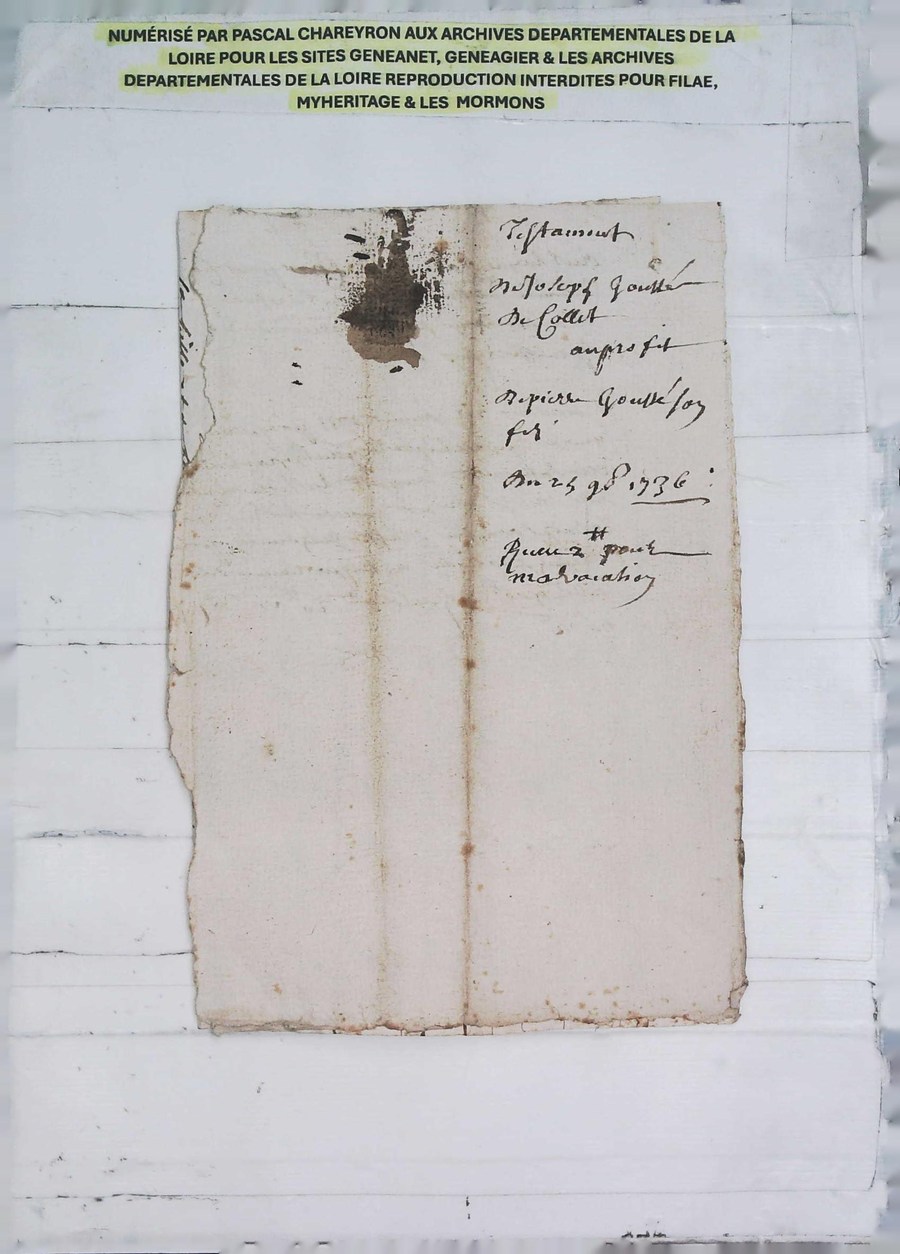 NUMÉRISÉ PAR PASCAL CHAREYRON AUX ARCHIVES DEPARTEMENTALES DE LA
LOIRE POUR LES SITES GENEANET, GENEAGIER & LES ARCHIVES
DEPARTEMENTALES DE LA LOIRE REPRODUCTION INTERDITES POUR FILAE,
MYHERITAGE & LES MORMONS
Testament
De Joseph Goutté
De Collet
au profit
De pierre Goutté son
fils
Du 25 9b 1736
pour
ma vacation